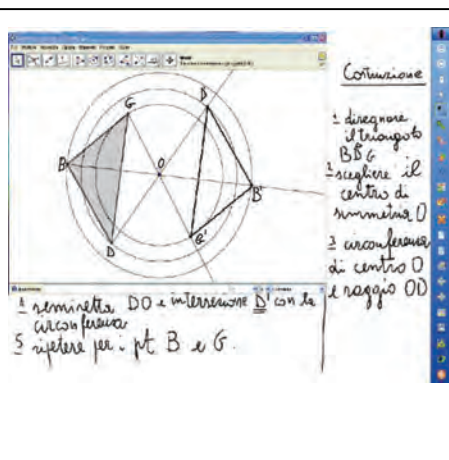 G
D'
B
O
B'
D
G'
Costruzione
1 disegnare
il triangolo
BDG
2 scegliere il
centro di
simmetria O
3 circonferenza
di centro O
e raggio OD
semiretta DO e intersezione D' con la
circonferenza
5 ripetere per i pt B e G.